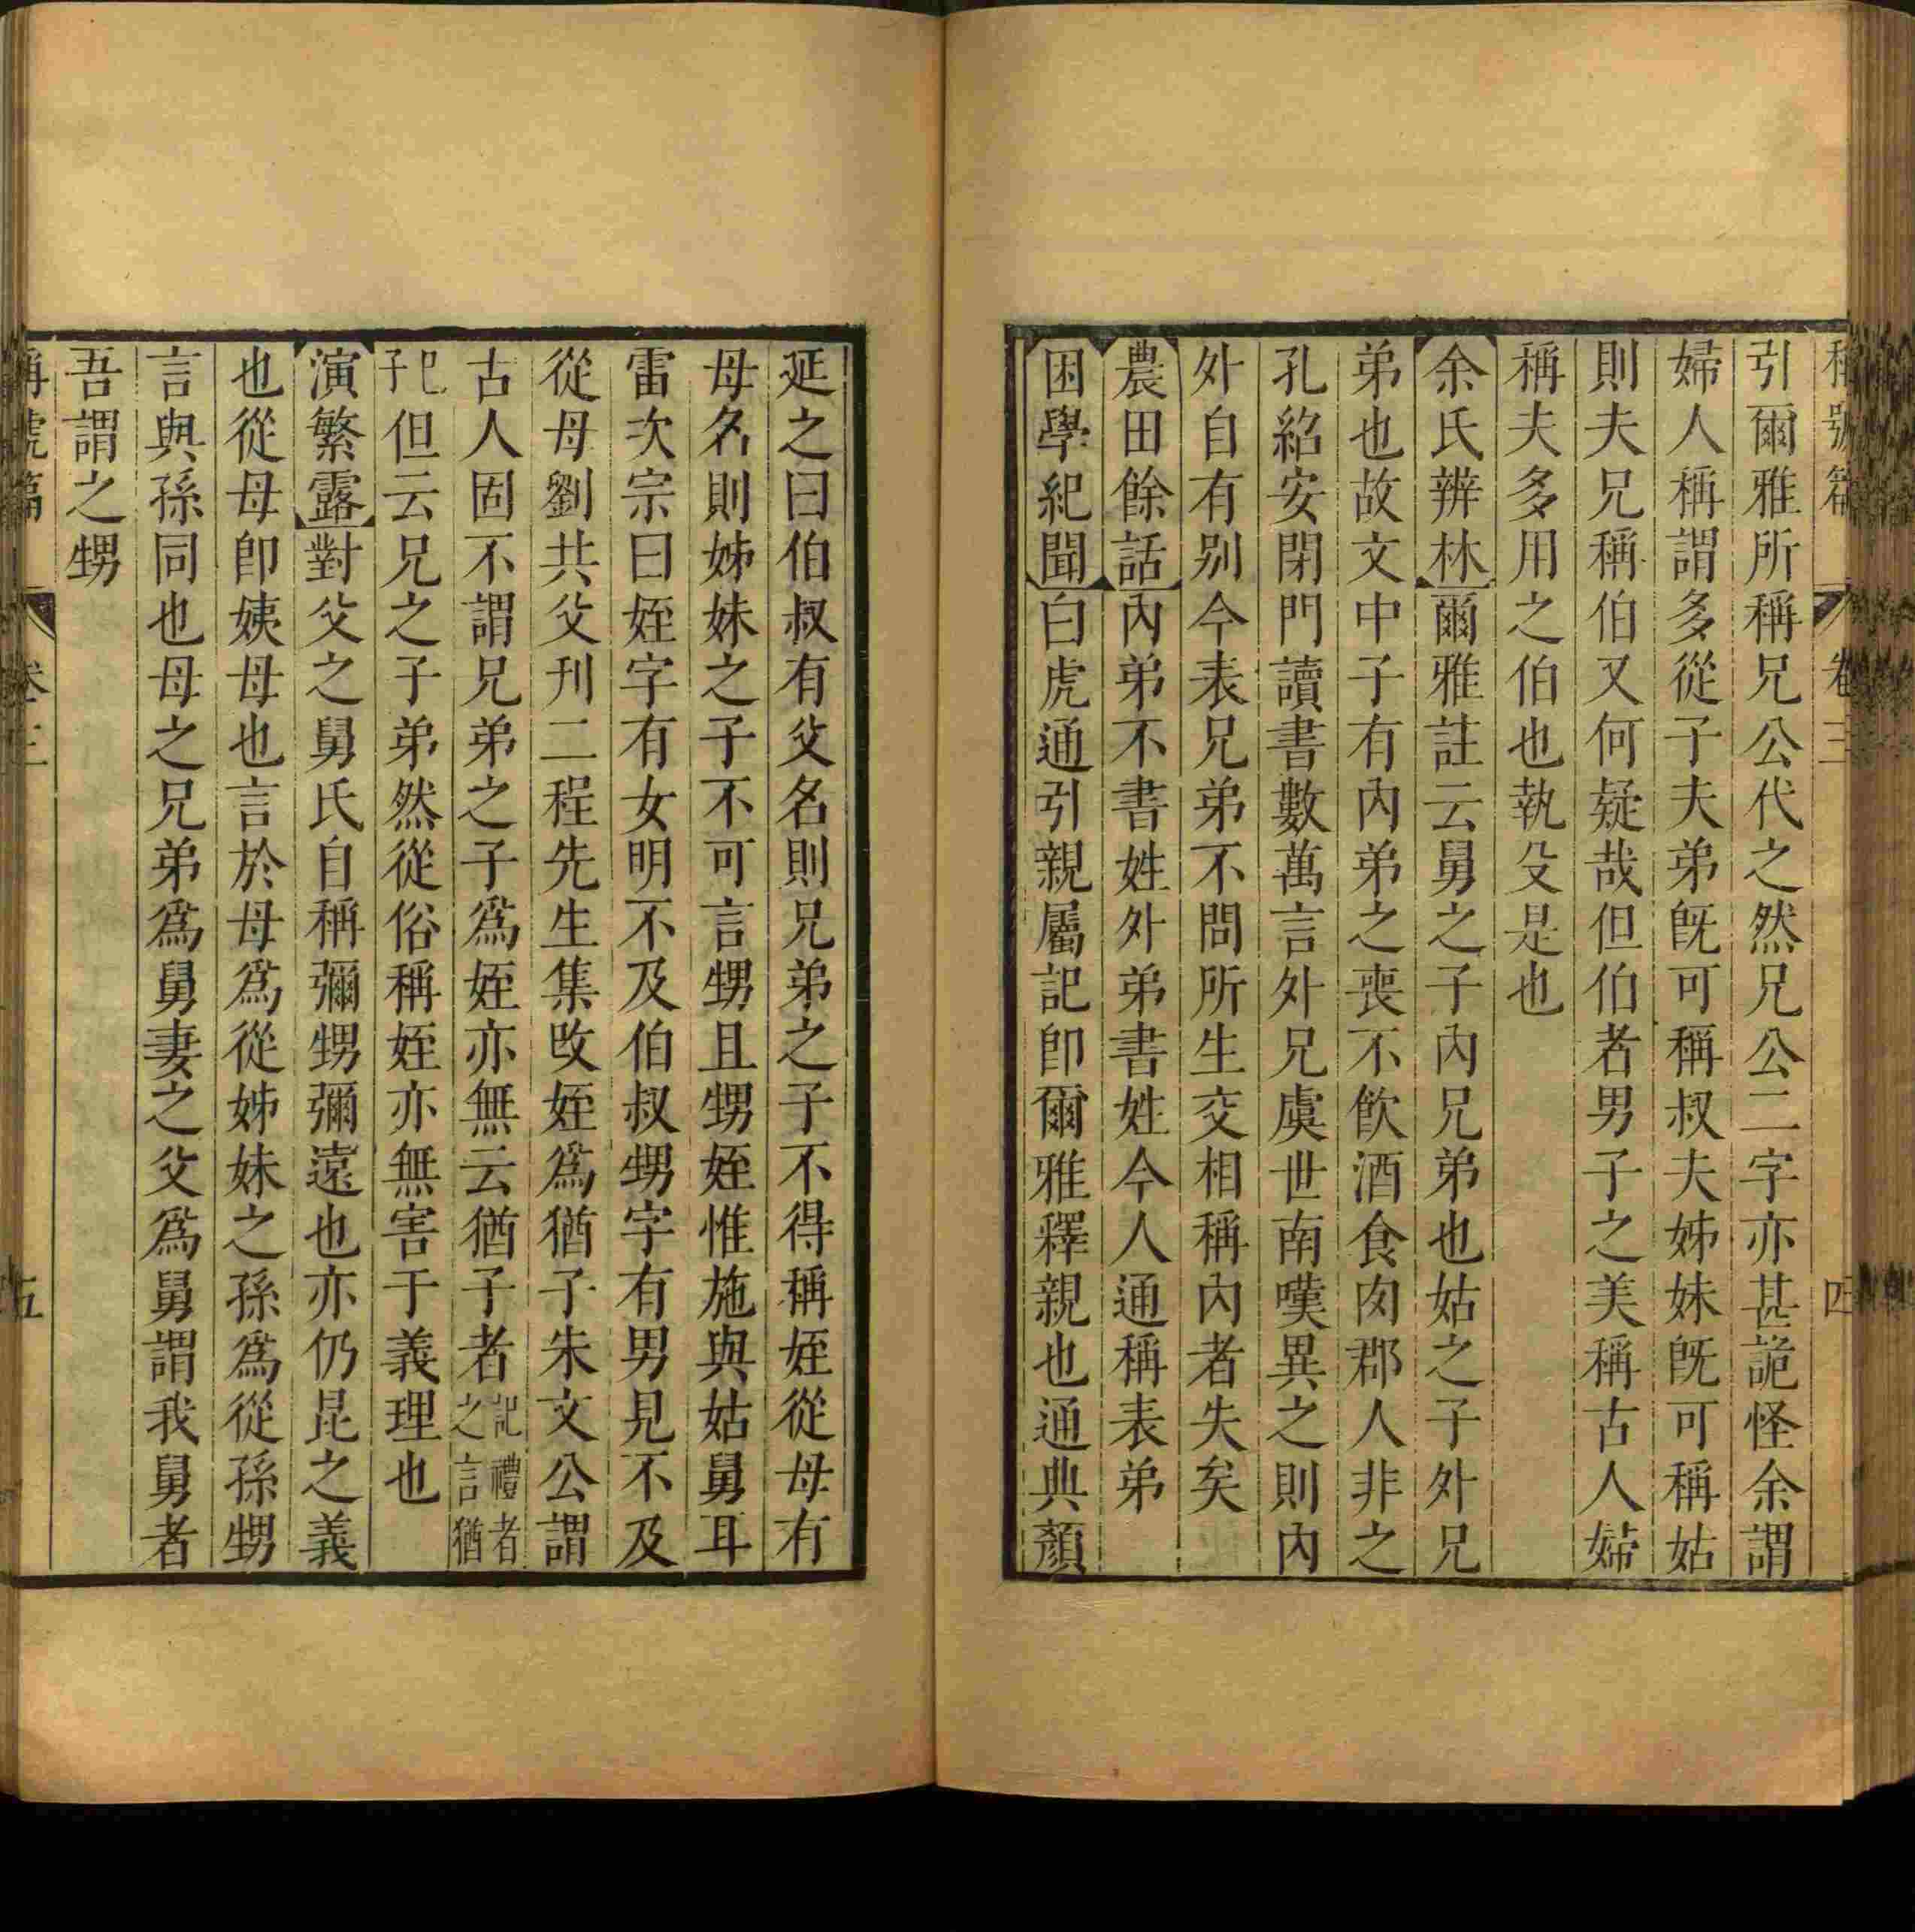 稱號篇 卷三 四
引爾雅所稱兄公代之然兄公二字亦甚詭怪余謂
婦人稱謂多從子夫弟旣可稱叔夫姊妹旣可稱姑
則夫兄稱伯又何疑哉但伯者男子之美稱古人婦
稱夫多用之伯也執殳是也
余氏辨林爾雅註云舅之子內兄弟也姑之子外兄
弟也故文中子有內弟之喪不飮酒食肉郡人非之
孔紹安閉門讀書數萬言外兄虞世南嘆異之則內
外自有别今表兄弟不問所生交相稱內者失矣
農田餘話內弟不書姓外弟書姓今人通稱表弟
困學紀聞白虎通引親屬記卽爾雅釋親也通典顏
延之曰伯叔有父名則兄弟之子不得稱姪從母有
母名則姊妹之子不可言甥且甥姪惟施與姑舅耳
雷次宗曰姪字有女明不及伯叔甥字有男見不及
從母劉共父刊二程先生集改姪爲猶子朱文公謂
古人固不謂兄弟之子爲姪亦無云猶子者記禮者之言猶
子巳但云兄之子弟然從俗稱姪亦無害于義理也
演繁露對父之舅氏自稱彌甥彌遠也亦仍昆之義
也從母卽姨母也言於母爲從姊妹之孫爲從孫甥
言與孫同也母之兄弟爲舅妻之父爲舅謂我舅者
吾謂之甥
稱號篇 卷三 五